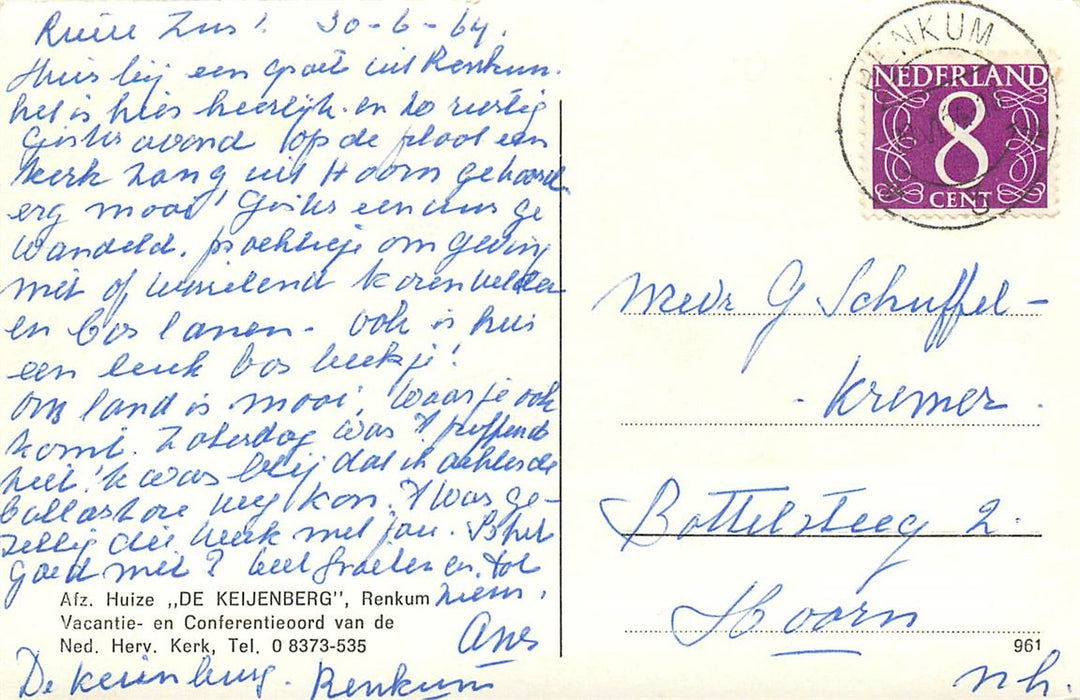 Zus! 30-6-64.
Hier bij een groet uit Renkum.
het is hier heerlijk. en zo rustig
Gister avond op de plaat een
kerk zang uit Hoorn gehoord
erg mooi! Gister een uur ge
wandeld. prachtige om geving
met of wisselend korenvelden
en bos lanen - ook is hier
een leuk bos beekje!
Ons land is mooi, waar je ook
komt. Zaterdag was 't puffend
heet! 'k was blij dat ik achter de
weg kon. 't was ge-
zellig die week met Jan. Is het
goed met? veel groeten en tot
ziens.
Afz. Huize „DE KEIJENBERG”, Renkum
Vacantie- en Conferentieoord van de
Ned. Herv. Kerk, Tel. 0 8373-535
De Keienburg. Renkum
RENKUM
NEDERLAND
8
CENT
Mevr G Schuffel-
- Kremer.
Bottelsteeg 2.
Hoorn
961
n.h.